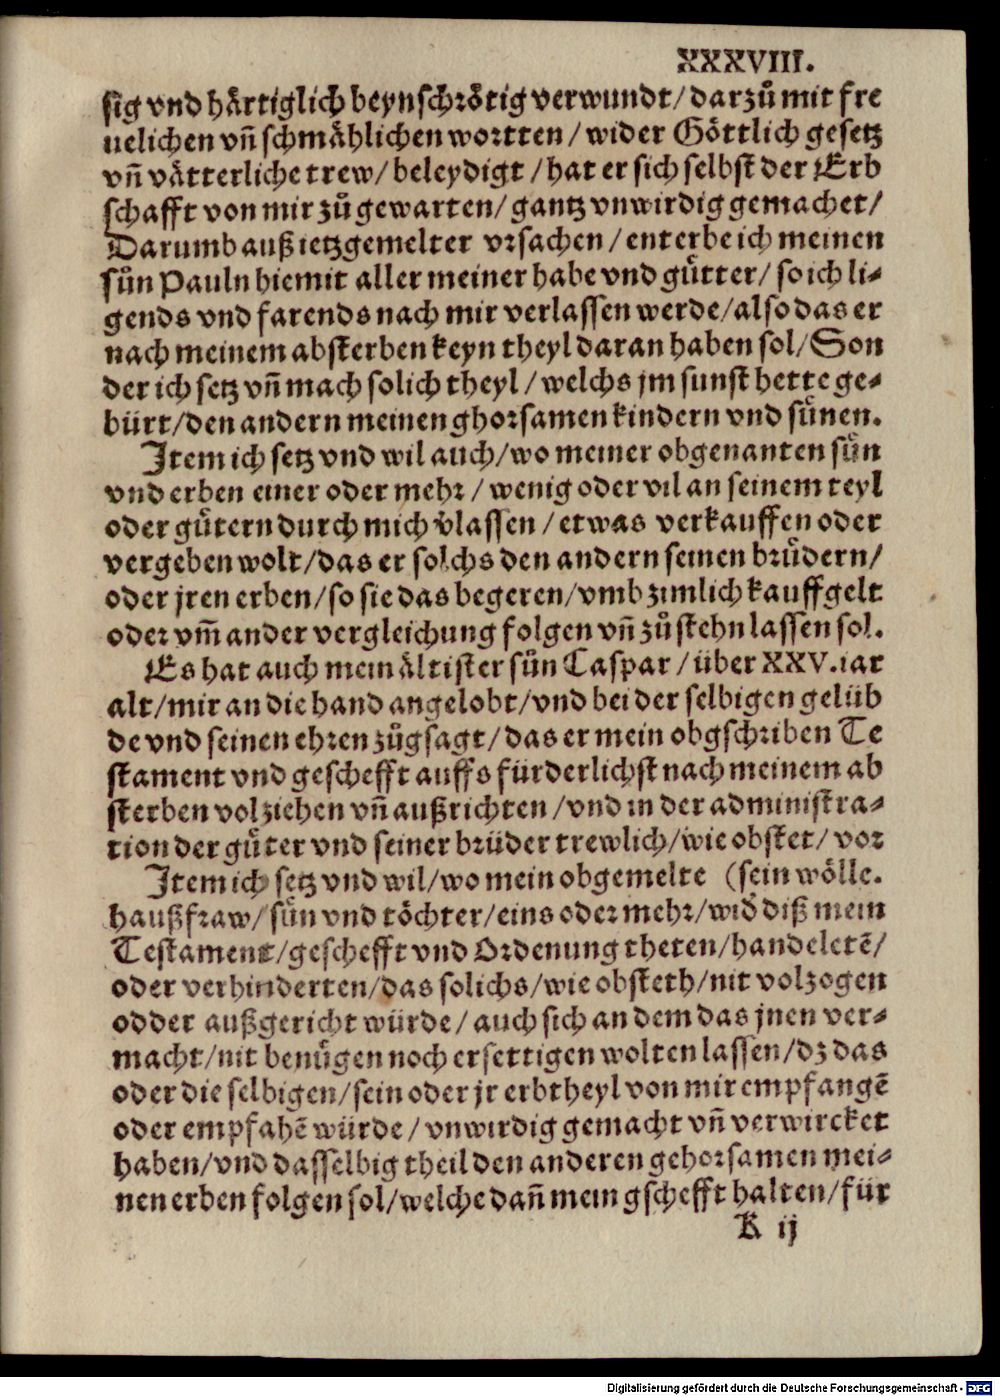 XXXVIII.
sig vnd hårtiglich beynschrötig verwundt/darzů mit fre
uelichen vñ schmåhlichen wortten/wider Göttlich gesetz
vñ våtterliche trew/beleydigt/hat er sich selbst der Erb
schafft von mir zů gewarten/gantz vnwirdig gemachet/
Darumb auß ietzgemelter vrsachen/enterbe ich meinen
sůn Pauln hiemit aller meiner habe vnd gůtter/so ich li-
gends vnd farends nach mir verlassen werde/also das er
nach meinem absterben keyn theyl daran haben sol/Son
der ich setz vñ mach solich theyl/welchs jm sunst hette ge-
bürt/den andern meinen ghorsamen kindern vnd sünen.
Item ich setz vnd wil auch/wo meiner obgenanten sün
vnd erben einer oder mehr/wenig oder vil an seinem teyl
oder gütern durch mich v̓lassen/etwas verkauffen oder
vergeben wolt/das er solchs den andern seinen brüdern/
oder jren erben/so sie das begeren/vmb zimlich kauffgelt
oder vm̃ ander vergleichung folgen vñ zů stehn lassen sol.
Es hat auch mein åltister sůn Caspar/über XXV.iar
alt/mir an die hand angelobt/vnd bei der selbigen gelüb
de vnd seinen ehren zůgsagt/das er mein obgschriben Te
stament vnd geschefft auffs fürderlichst nach meinem ab
sterben volziehen vñ außrichten/vnd in der administra-
tion der gůter vnd seiner brüder trewlich/wie obstet/vor
Item ich setz vnd wil/wo mein obgemelte (sein wölle.
haußfraw/sün vnd töchter/eins oder mehr/wid̓ diß mein
Testament/geschefft vnd Ordenung theten/handeletē/
oder verhinderten/das solichs/wie obsteth/nit volzogen
odder außgericht würde/auch sich an dem das jnen ver-
macht/nit benügen noch ersettigen wolten lassen/dz das
oder die selbigen/sein oder jr erbtheyl von mir empfangē
oder empfahē würde/vnwirdig gemacht vñ verwircket
haben/vnd dasselbig theil den anderen gehorsamen mei-
nen erben folgen sol/welche dañ mein gschefft halten/für
K ij
Digitalisierung gefördert durch die Deutsche Forschungsgemeinschaft - DFG